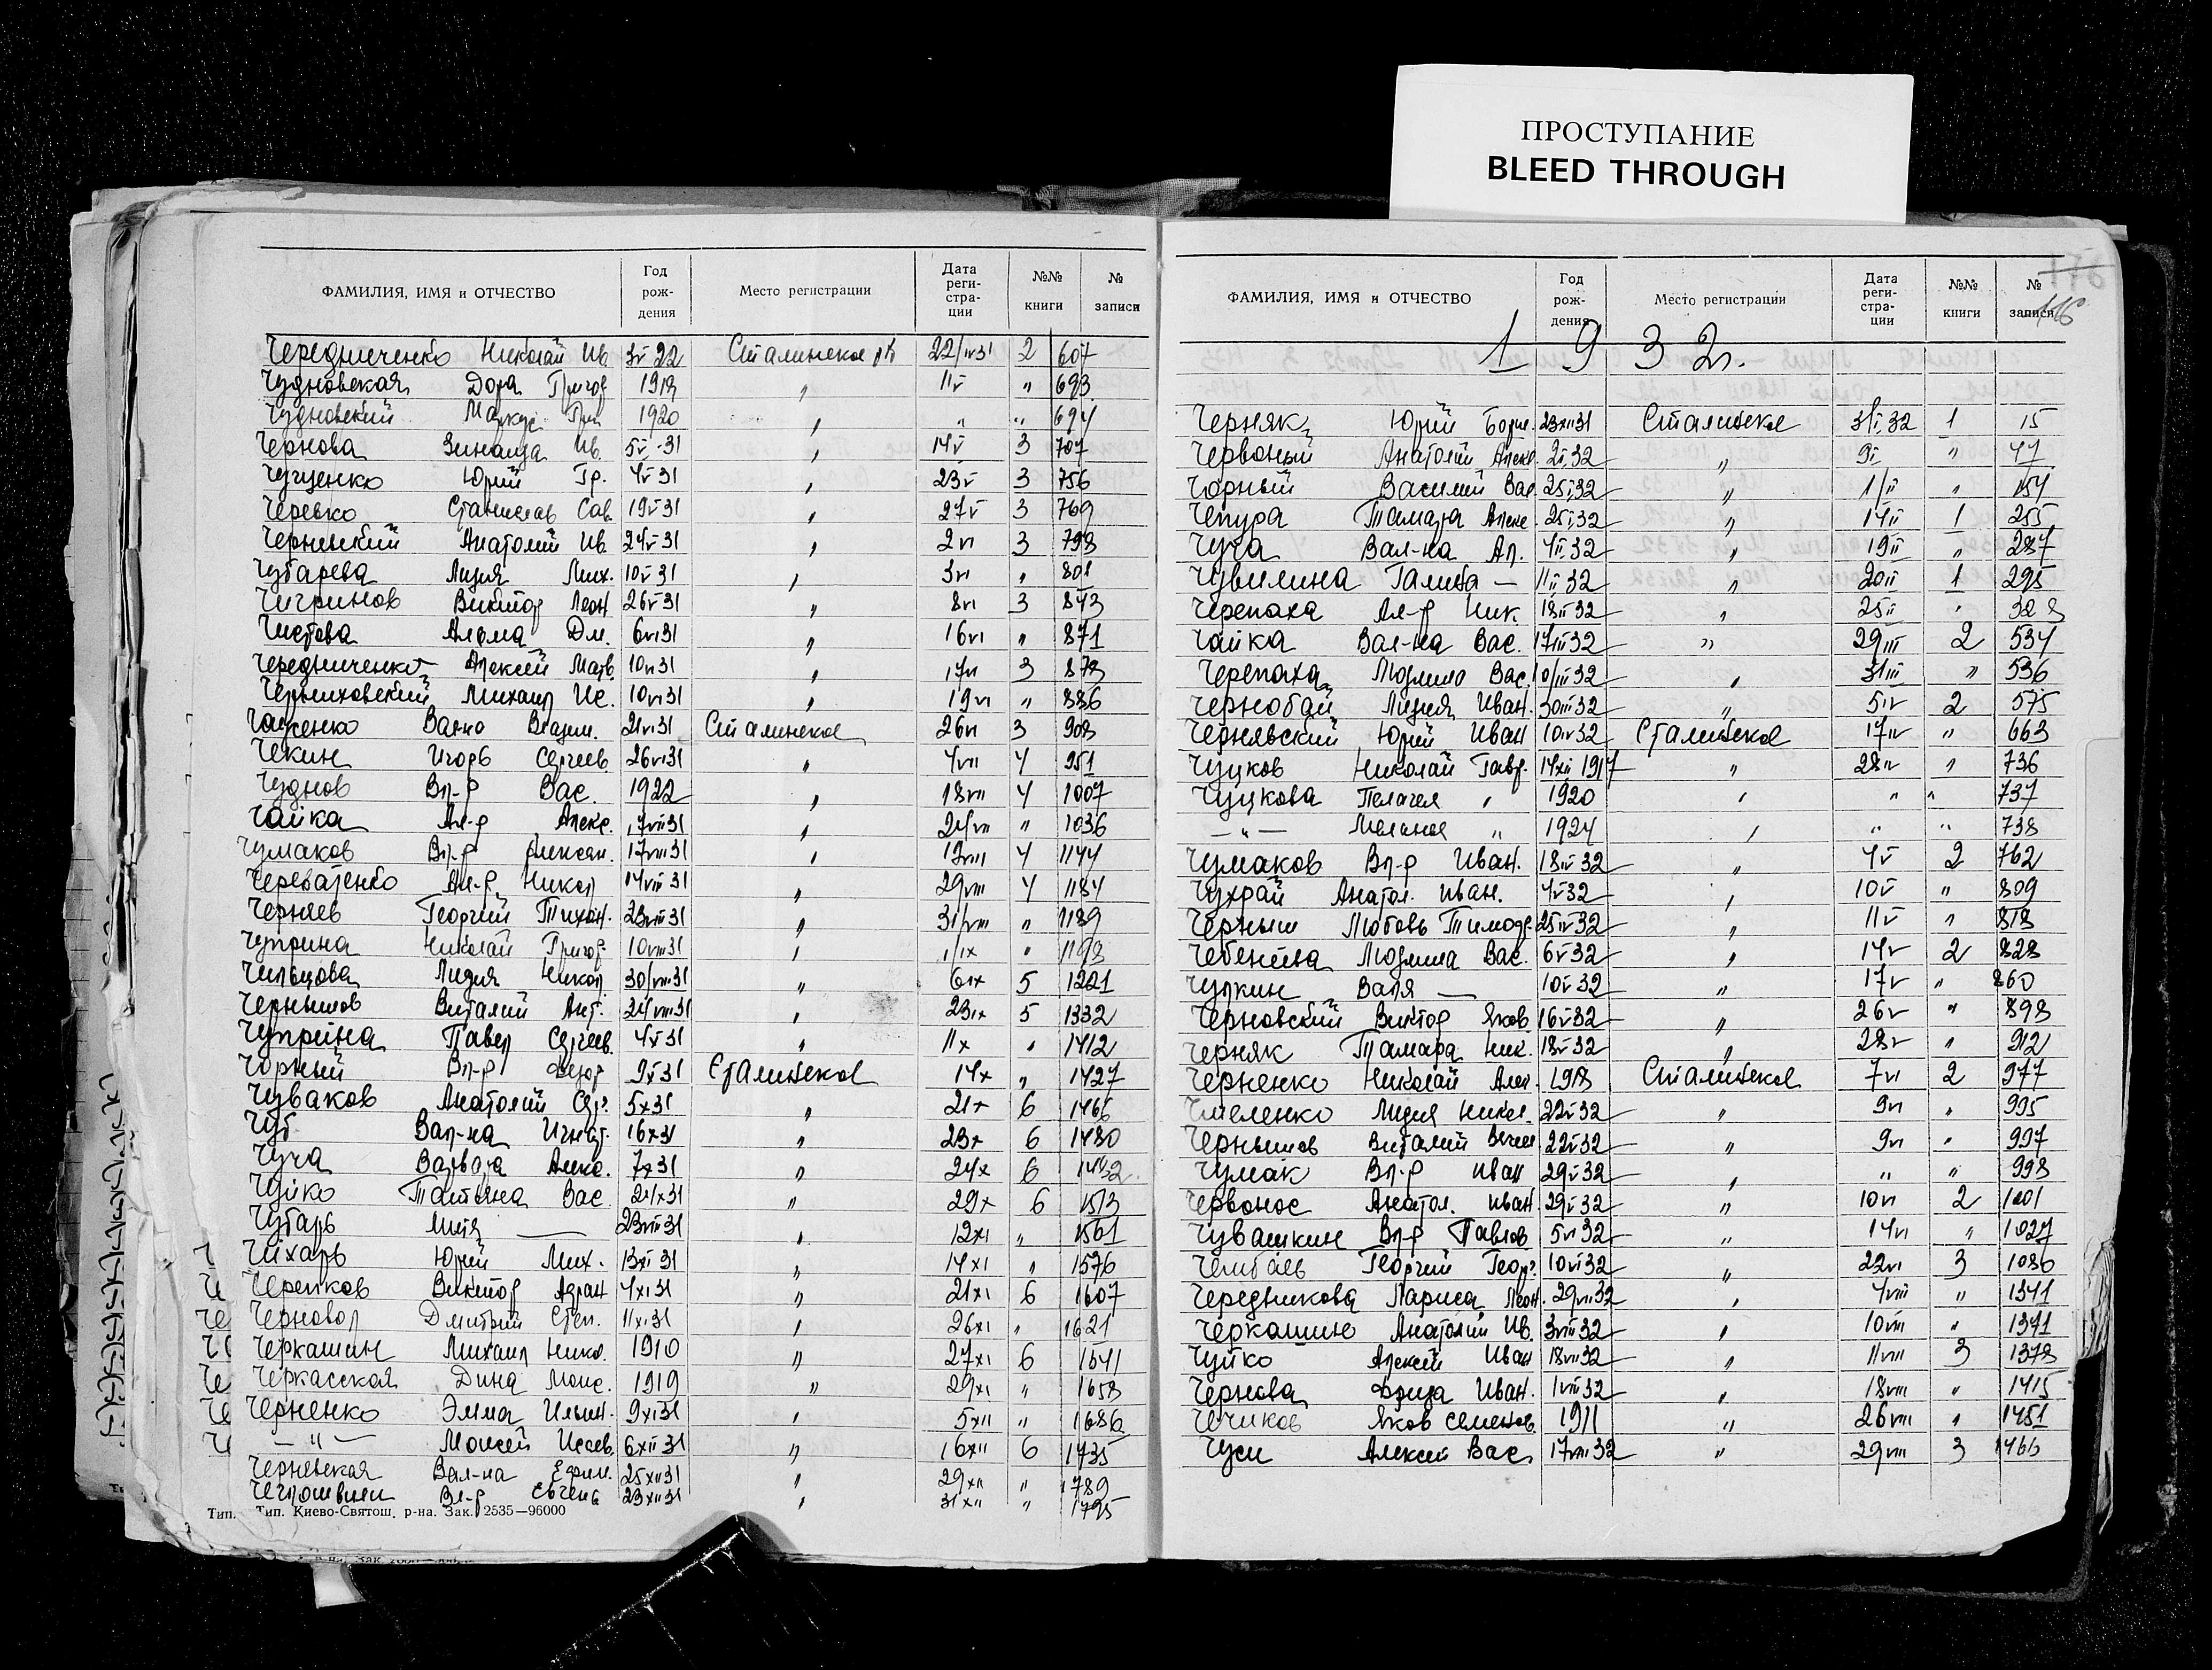 ПРОСТУПАНИЕ
BLEED THROUGH
ФАМИЛИЯ, ИМЯ и ОТЧЕСТВО Год рож-дения Место регистрации Дата реги-стра-ции №№ книги № записи
Чередниченко Николай Ив. 22 Сталинское 22/IV31 2 607
Чудновская Дора Григор 1919 " 11V " 693
Чудновский Маркус Гри 1920 " " " 694
Чернова Зинаида Ив. 5V-31 " 14V 3 707
Юрий Гр. 4V31 " 23V 3 756
Черевко Станислав Сав. 19V31 " 27V 3 769
Чернявский Анатолий Ив. 24V31 " 2VI 3 798
Чубарева Лидия Мих. 10V31 " 3VI " 801
Чигринов Виктор Леон 26V31 " 8VI 3 843
Чистова Алома Дм. 6VI31 " 16VI " 871
Чередниченко Алексей Матв. 10VI31 " 17VI 3 873
Черниховский Михаил Ис. 10VI31 " 19VI " 886
Владим. 21VI31 Сталинское 26VI 3 908
Чекин Игорь Сергеев. 26VI31 " 4VII 4 951
Чуднов Вл-р Вас. 1922 " 18VII 4 1007
Чайка Ал-р Алекс. 17VII31 " 24VII " 1036
Чумаков Вл-р Алексан. 17VIII31 " 4 1144
Ал-р Никол 14VIII31 " 29VIII 4 1184
Черняев Георгий Тихон. 23VIII31 " 31/VIII " 1189
Чуприна Николай Григор. 10VIII31 " 1/IX " 1193
Чильцова Лидия Никол 30/VIII31 " 6IX 5 1221
Чернышов Виталий Ант. 24VIII31 " 23IX 5 1332
Чуприна Павел Сергеев. 31 " 11X " 1412
Чорный Вл-р Федор 31 Сталинское 14X " 1427
Чуваков Анатолий Сер. 5X31 " 21X 6 1466
Чуб Вал-на Игнат. 16X31 " 23X 6 1480
Чуча Варвара Алекс. 7X31 " 24X 6
Чуйко Татьяна Вас. 24X31 " 29X 6 1513
Чубарь — 23VIII31 " 12XI " 1561
Чихарь Юрий Мих. 13XI31 " 14XI " 1576
Черепков Виктор Адрам 4XI31 " 21XI 6 1607
Черновол Дмитрий Степ. 11XI31 " 26XI " 1621
Черкашин Михаил Нико. 1910 " 27XI 6 1641
Черкасская Дина Моис. 1919 " 29XI " 1658
Черненко Эмма Ильин. 9XI31 " 5XII " 1686
— " — Моисей Исаев. 6XII31 " 16XII 6 1735
Чернявская Вал-на Ефим. 25XII31 " 29XII " 1789
Вл-р Евгень 23XII31 " 31XII " 1795
Тип. Киево-Святош. р-на. Зак. 2535—96000
ФАМИЛИЯ, ИМЯ и ОТЧЕСТВО Год рож-дения Место регистрации Дата реги-стра-ции №№ книги № записи
116
1 9 3 2 г.
Черняк Юрий Борис. 23XII31 Сталинское 3/I,32 1 15
Червоный Анатолий Алекс. 2I,32 " 9I " 44
Чорный Василий Вас 25I,32 " 1/II " 154
Чепура Тамара Алекс. 25I,32 " 14II 1 255
Чуча Вал-на Ал. 4II,32 " 19II " 287
Чувилина Галина — 11II,32 " 20II 1 295
Черепаха Ал-р Ник. 18II32 " 25II " 328
Чайка Вал-на Вас. 17III32 " 29III 2 534
Черепаха Людмила Вас. 10/III32 " 31III " 536
Чернобай Лидия Иван. 30III32 " 5IV 2 575
Чернявский Юрий Иван 10IV32 Сталинское 17IV " 663
Чуцков Николай Гавр. 14XII1917 " 28IV " 736
Чуцкова Пелагея " 1920 " " " 737
— " — Мелания " 1924 " " " 738
Чумаков Вл-р Иван. 18IV32 " 4V 2 762
Чухрай Анатол. Иван. 4V32 " 10V " 809
Черныш Любовь Тимоф. 25IV32 " 11V " 818
Людмила Вас. 6V32 " 14V 2 828
Чулкин Валя — 10V32 " 17V " 860
Черновский Виктор Яков 16V32 " 26V " 898
Черняк Тамара Ник. 18V32 " 28V " 912
Черненко Николай Алек. 1918 Сталинское 7VI 2 977
Лидия Никол. 22V32 " 9VI " 995
Чернышов Виталий 22V32 " 9VI " 997
Чумак Вл-р Иван 29V32 " " " 998
Червонос Анатол. Иван. 29V32 " 10VI 2 1001
Чувашкин Вл-р Павлов 5VI32 " 14VI " 1027
Челибаев Георгий Георг. 10VI32 " 22VI 3 1086
Чередникова Лариса Леон. 29VII32 " 4VIII " 1341
Черкашин Анатолий Ив. 3VIII32 " 10VIII " 1371
Чуйко Алексей Иван 18VII32 " 11VIII 3 1378
Чернова Фрида Иван. 1VIII32 " 18VIII " 1415
Чечиков Яков Семенов. 1911 " 26VIII " 1451
Чуси Алексей Вас. 17VIII32 " 29VIII 3 1466